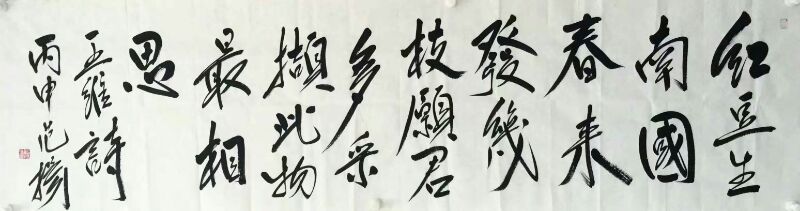 紅豆生
南國
春来
發幾
枝願君
多采
擷此物
最相
思
王維詩
丙申范揚